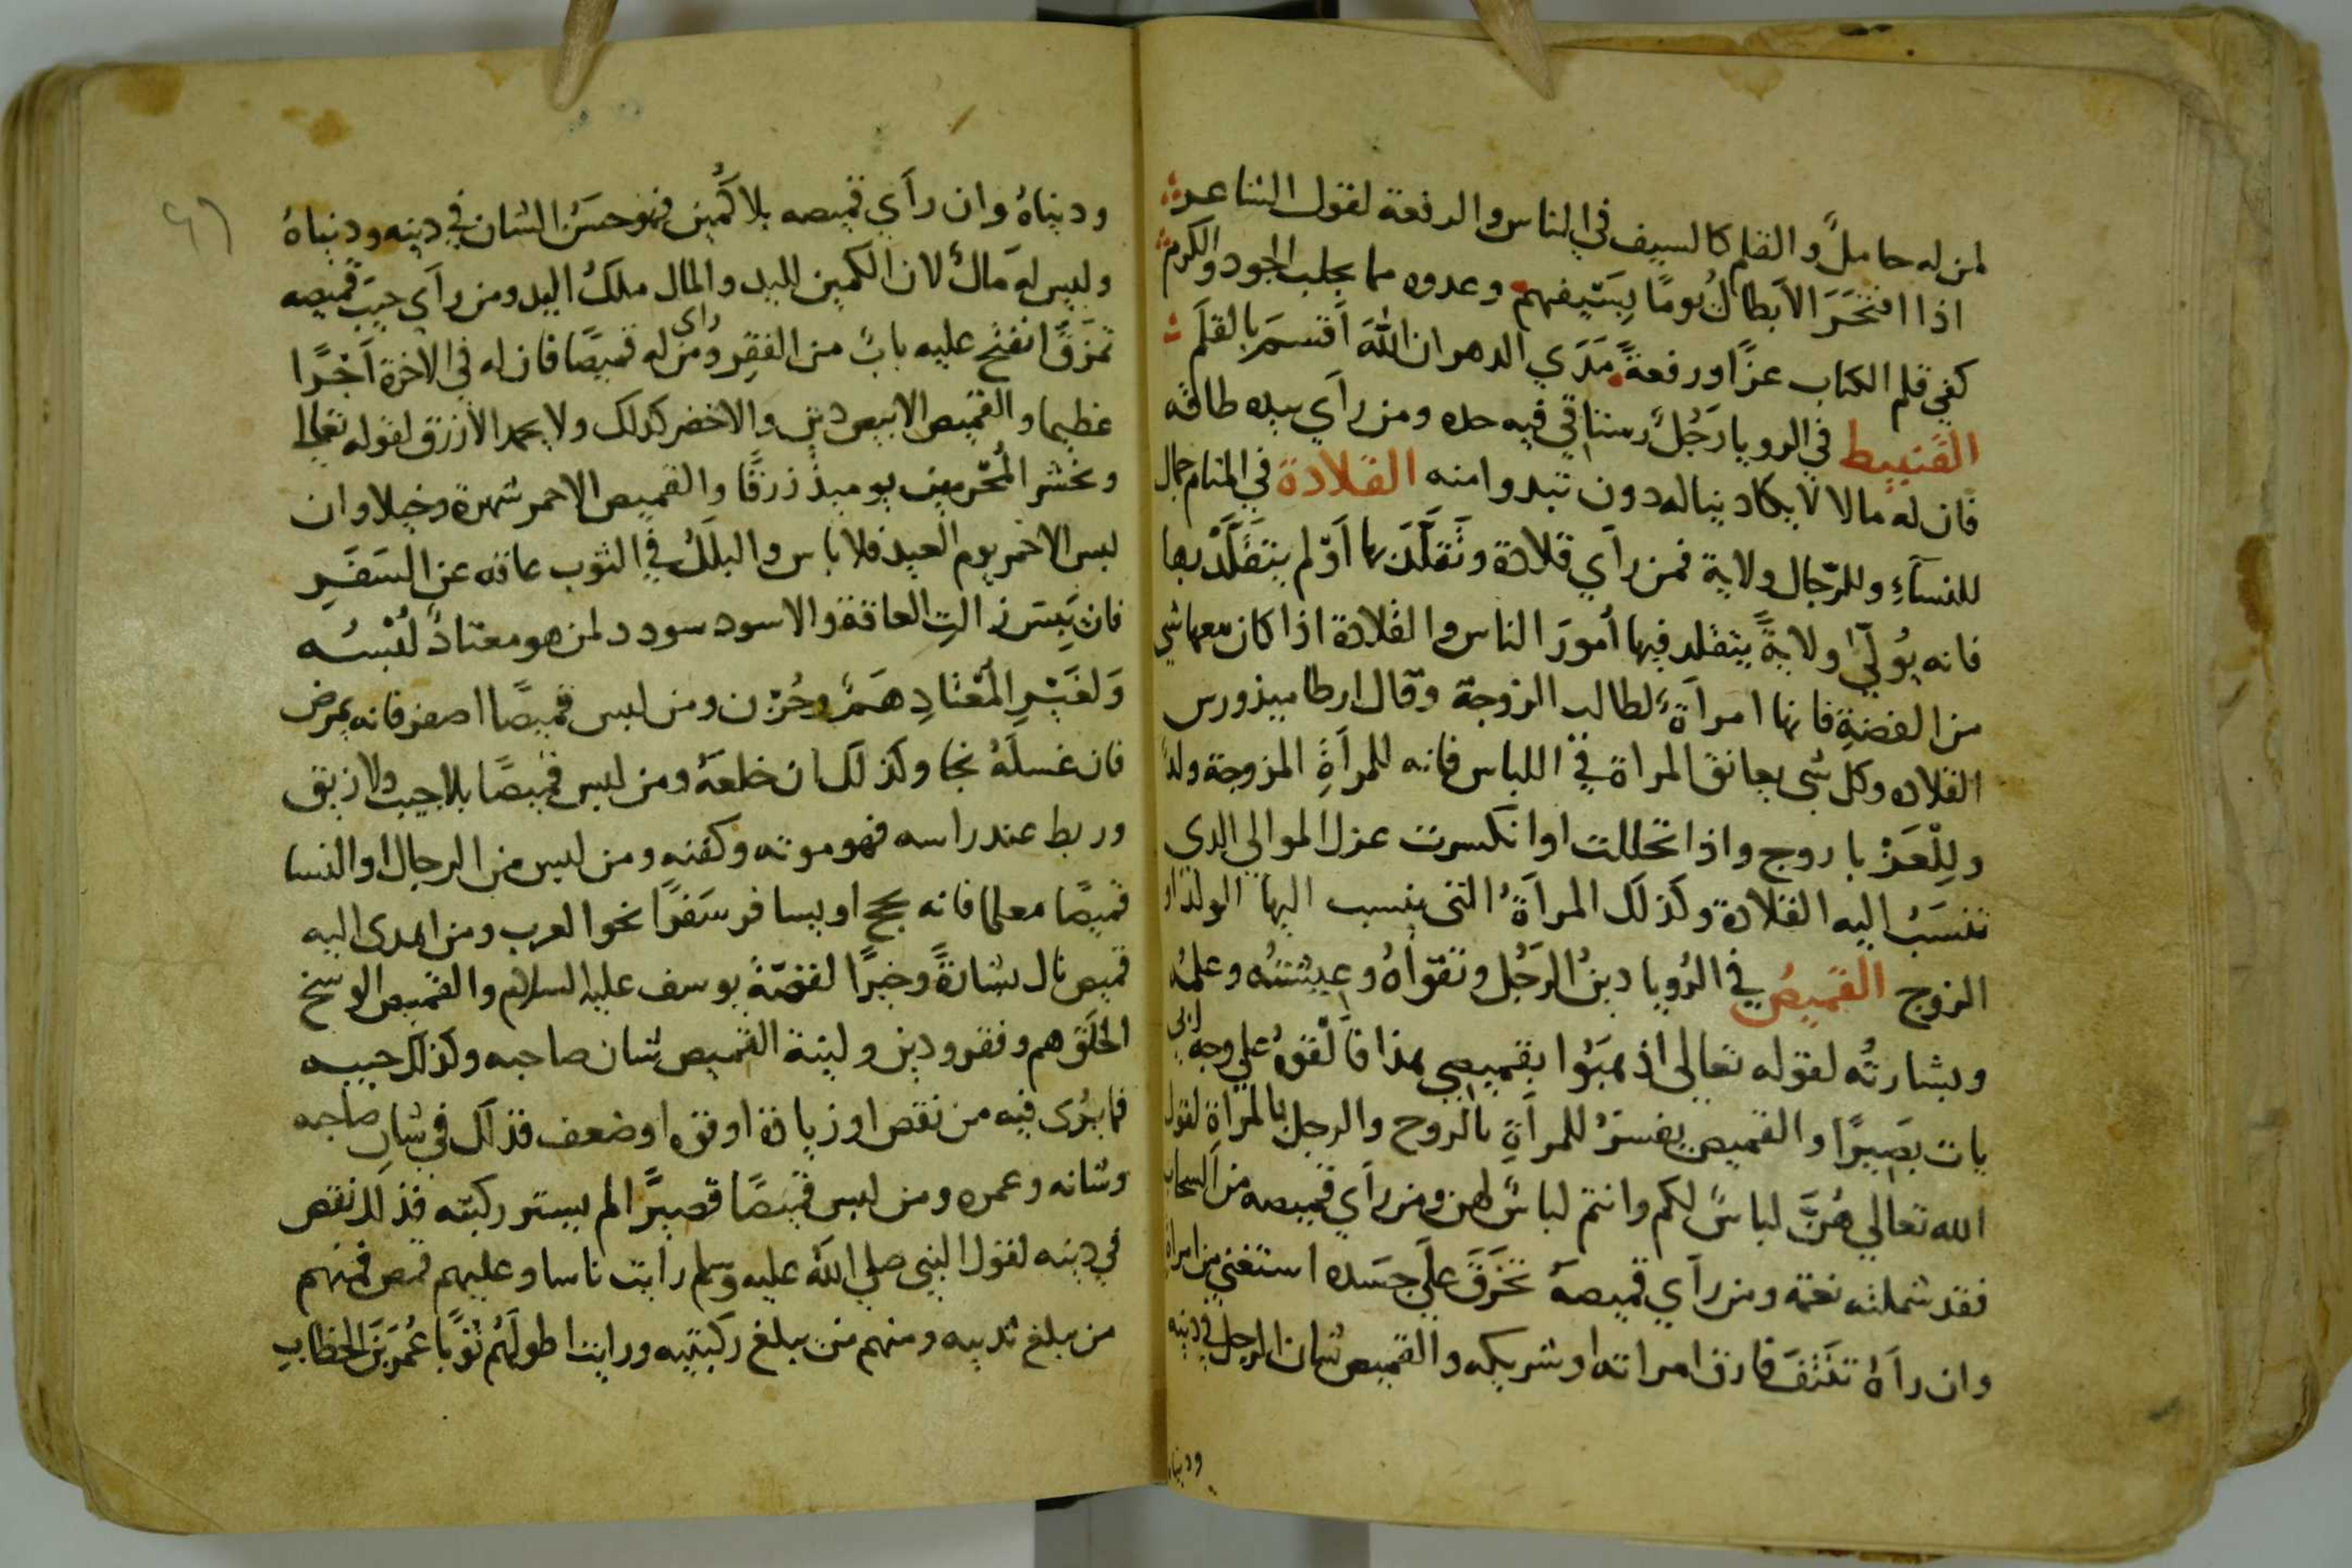 لمن له حاملٌ والقلم كالسيف في الناس والرفعة لقول الشاعر
اذا افتخَرَ الابطالُ يومًا بِسَيفهم وعدوه مما يجلب الجود والكرم
كفي قلم الكتاب عزًا ورفعةً مَدَي الدهر ان اللهَ اَقسمَ بالقلَم
القنبيط في الرويا رَجُلٌ رستاقي فيه حده ومن رأي بيده طاقه
فان له مالا لا يكاد يناله دون تبدوا منه القلادة في المنام جمال
للنسآءِ وللرّجال ولاية فمن رأي قلادة وتَقلَّدَ بها اَوْ لم يتقَلَّدْ بها
فانه يُولّيٰ ولايةً يتقلد فيها اُمورَ الناس والقلادة اذا كان معها شي
من الفضةِ فانها امرأةٌ لطالب الزوجة وقال ارطاميذورس
القلاده وكل شى يعانق المراة في اللباس فانه للمرأةِ المزوجة ولدٌ
وللْعَزْبا زوج واذا تحللت او انكسرت عزل الموالي الدى
تنسَبُ اليه القلادة وكذلك المرأةُ التى ينسب اليها الولد او
الزوج القميصُ في الرُويا دينُ الرَجُل وتقواهُ وعيشتُه وعلمُه
وبشارتُه لقوله تعالى اذهبَوُا بقميصي هذا فاَلْقوهُ علي وجه ابي
يات بصَيرًا والقميص يفسَرُ للمرأةِ بالزوج والرجل بالمراةِ لقول
الله تعالي هُنَّ لباسٌ لكم وانتم لباسٌ لهن ومن رأي قميصه من السحاب
فقد شملته نعمة ومن رأي قميصهُ تَخرَقَ علَي جسَده استغني من امراة
وان رأهُ تفتَقَ فارق امراته او شريكه والقميص شان الرجل في دينه
ودنياه
ودنياهُ وان رأي قميصه بلا كُمَين فهو حسَنُ الشان في دينه ودنياهُ
وليس له مَالٌ لان الكمين لليد والمال ملكُ اليد ومن رأي جيبَ قميصه
تمزقَ انفتح عليه بابٌ من الفقِر ومن راى له قميصًا فان له في الاخرة اَجْرًا
عظيما والقميص الابيض دين والاخضر كذلك ولا يحمد الازرق لقوله تعالى
ونحشر المُجْرمين يوميذٍ زرقًا والقميص الاحمر شهرة وخيلا وان
لبس الاحمر يوم العيد فلا باس والبلَلُ في الثوب عاقه عن السَفَرِ
فان يَبِسَ زالتِ العاقة والاسود سودد لمن هو معتادٌ لُبْسُه
وَلغَيْرِ المَعْتَادِ هَمٌ وحُزن ومن لبس قميصًا اصفر فانه يمرض
فان غسلَهُ نجا وكذلك ان خلعهُ ومن لبس قميصًا بلا جيب ولا زيق
وربط عند راسه فهو موته وكفنه ومن لبس من الرجال او النسا
قميصًا معلما فانه يحج او يسافر سَفرًا نحو العرب ومن اهدى اليه
قميص نال بشارةً وخيرًا لقصّة يوسف عليه السلام والقميص الوسخ
الخَلَق هم وفقر ودين ولبنة القميص شان صاحبه وكذلك جيبه
فما يُرى فيه من نقص او زيادة او قوه او ضعف فذلك في شان صاحبه
وشانه وعمره ومن لبس قميصًا قصيرًا لم يستر ركبته فذلك نقص
في دينه لقول النبي صلي اللهُ عليه وسلم رايت ناسا وعليهم قمص فمنهم
من يبلغ ثدييه ومنهم من يبلغ ركبتيه ورايت اطولَهُم ثوبًا عُمرَ بنَ الخطابِ